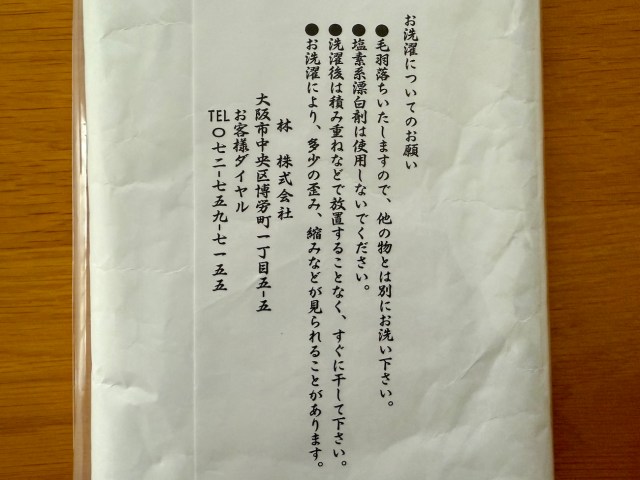 お洗濯についてのお願い
●毛羽落ちいたしますので、他の物とは別にお洗い下さい。
●塩素系漂白剤は使用しないでください。
●洗濯後は積み重ねなどで放置することなく、すぐに干して下さい。
●お洗濯により、多少の歪み、縮みなどが見られることがあります。
林 株式会社
大阪市中央区博労町一丁目五-五
お客様ダイヤル
TEL〇七二-七五九-七一五五